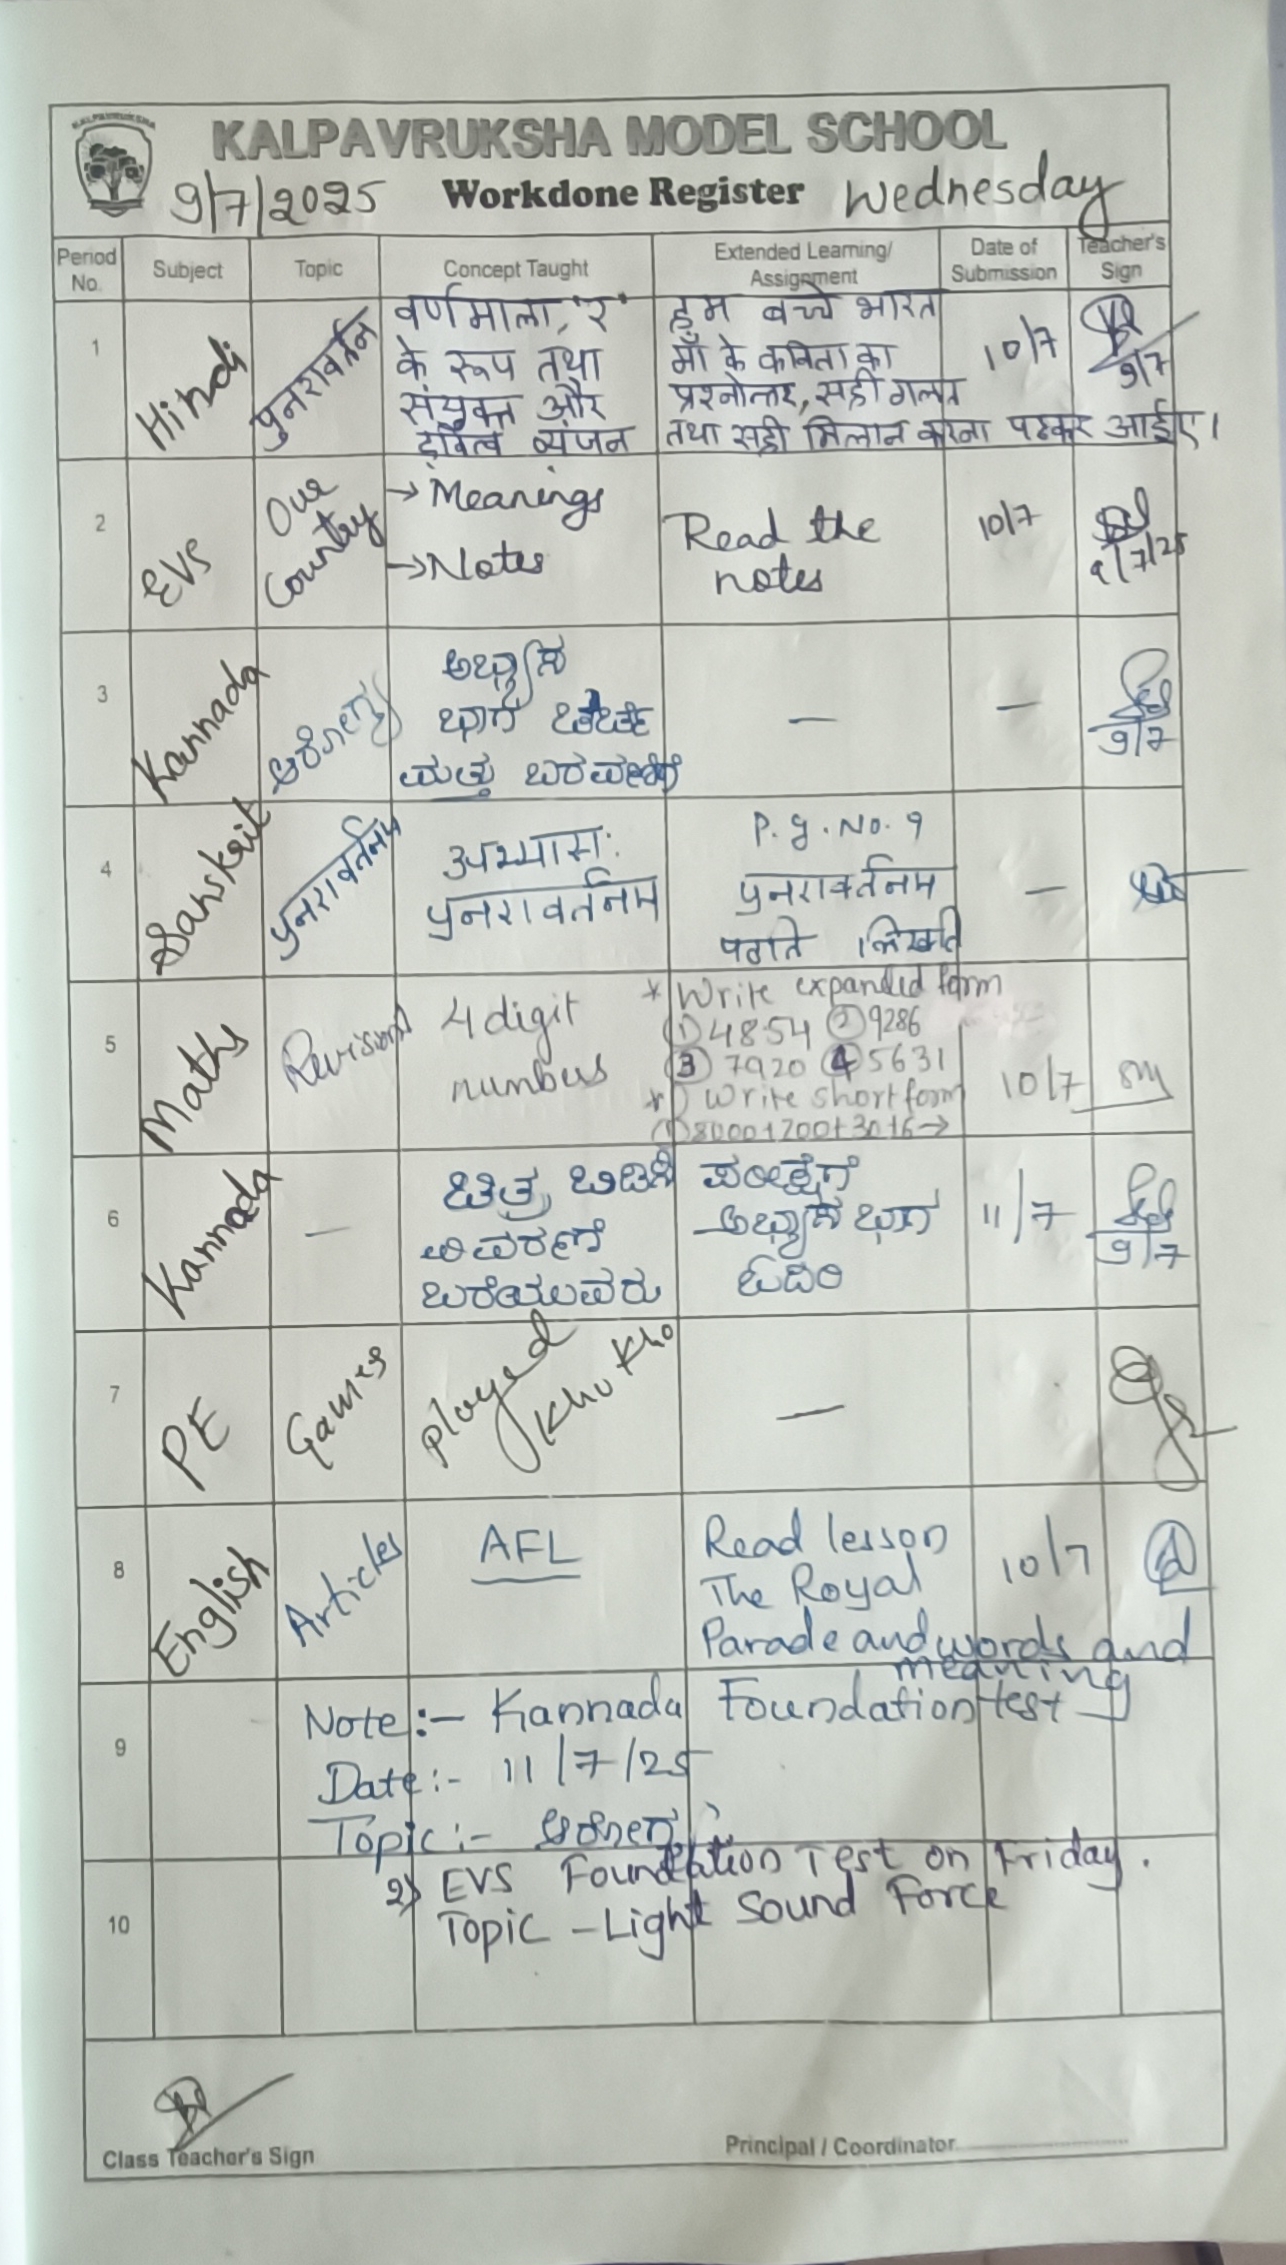 KALPAVRUKSHA
KALPAVRUKSHA MODEL SCHOOL
9/7/2025 Workdone Register Wednesday
Period No. Subject Topic Concept Taught Extended Learning/ Assignment Date of Submission Teacher's Sign
1 Hindi पुनरावर्तन
वर्णमाला, 'र'
के रूप तथा
संयुक्त और
द्वित्व व्यंजन
हम बच्चे भारत
माँ के कविता का
प्रश्नोत्तर, सही गलत
तथा सही मिलान करना पढकर आईए।
10/7
9/7
2 EVS Our Country
→ Meanings
→ Notes
Read the
notes
10/7
9/7/25
3 Kannada ಆರೋಗ್ಯ
ಅಭ್ಯಾಸ
ಭಾಗ ಚರ್ಚೆ
ಮತ್ತು ಬರವಣಿಗೆ
—
—
9/7
4 Sanskrit पुनरावर्तनम
अभ्यासः
पुनरावर्तनम
P.g.No. 9
पुनरावर्तनम
पठति लिखति
—
5 Maths Revision
4 digit
numbers
* Write expanded form
① 4854 ② 9286
③ 7920 ④ 5631
* Write short form
① 8000+200+30+6→
10/7
6 Kannada —
ಚಿತ್ರ ಬಿಡಿಸಿ
ವಿವರಣೆ
ಬರೆಯುವರು
ಪರೀಕ್ಷೆಗೆ
ಅಭ್ಯಾಸ ಭಾಗ
ಓದಿರಿ
11/7
9/7
7 PE Games
Played
Kho Kho
—
8 English Articles
AFL
Read lesson
The Royal
Parade and words and
meaning
10/7
9
Note:- Kannada Foundation test
Date:- 11/7/25
Topic:- ಆರೋಗ್ಯ
10
2) EVS Foundation Test on Friday.
Topic - Light Sound Force
Class Teacher's Sign
Principal / Coordinator